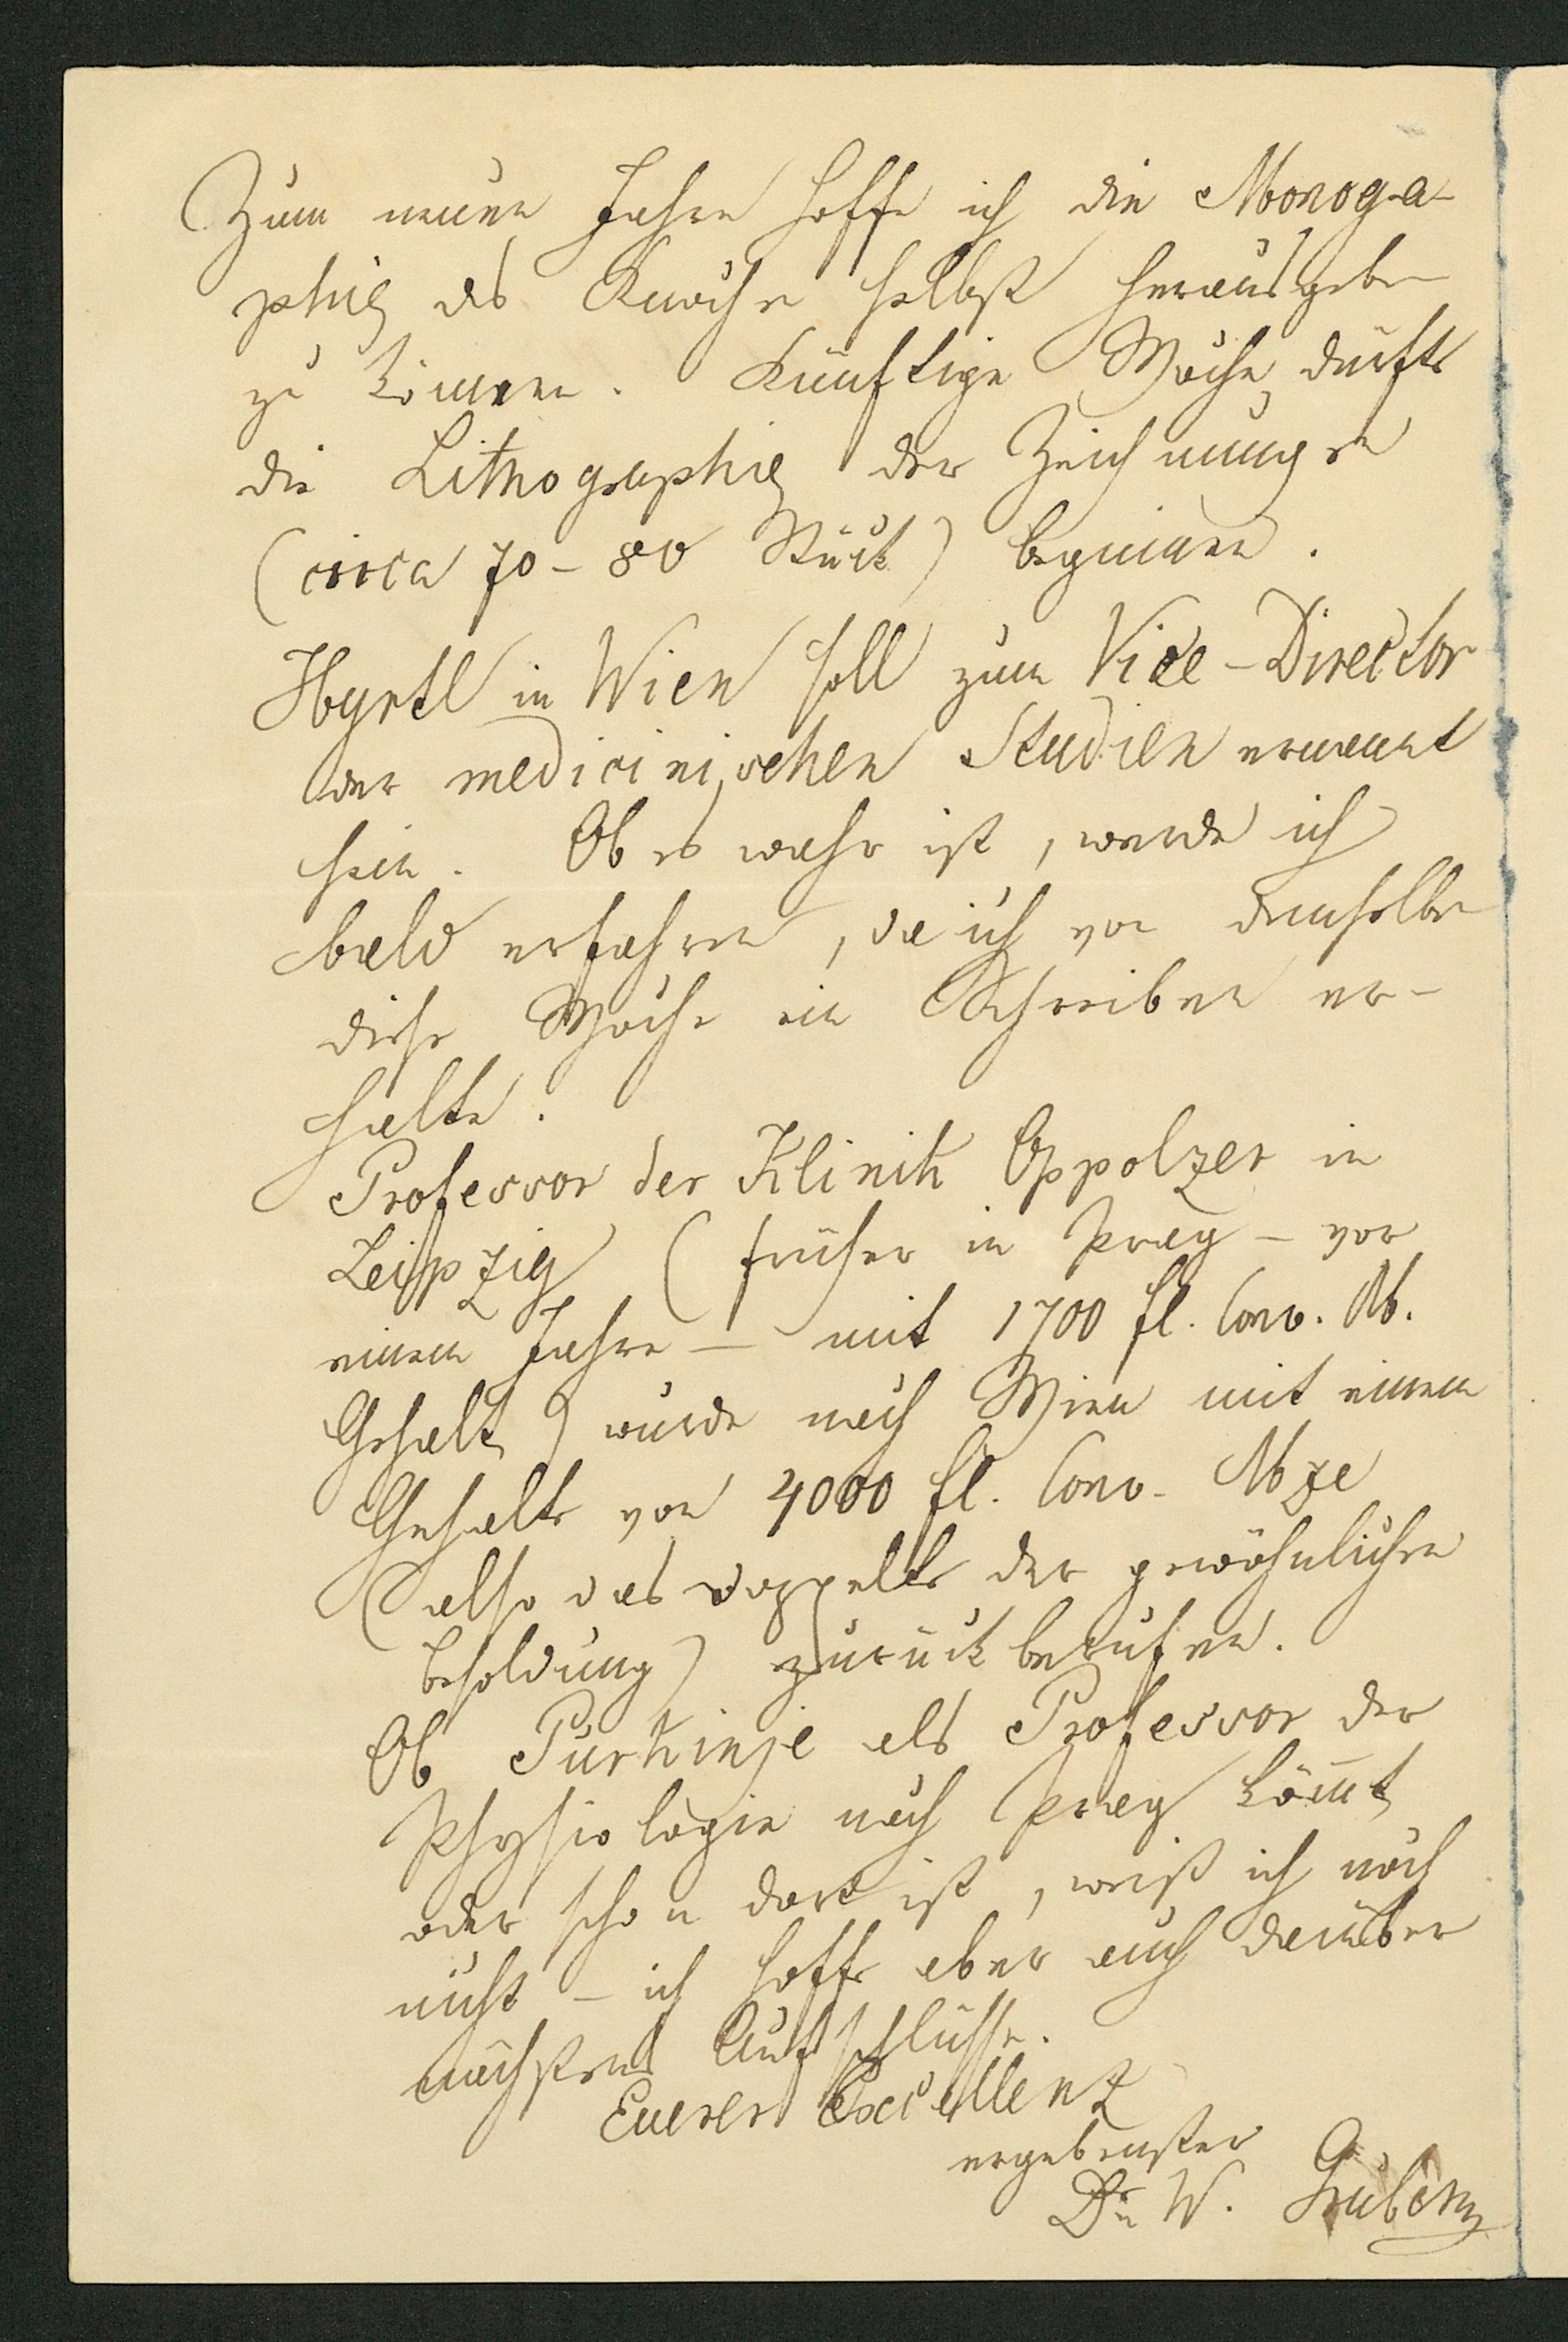 Zum neuen Jahre hoffe ich die Monogra-
phie des Knochen selbst herausgeben
zu können. Künftige Woche dürfte
die Lithographie der Zeichnungen
(circa 70 - 80 Stück) beginnen.
Hyrtl in Wien soll zum Vice-Director
der medicinischen Studien ernannt
sein. Ob es wahr ist, werde ich
bald erfahren, da ich von demselben
diese Woche ein Schreiben er-
halte.
Professor der Klinik Oppolzer in
Leipzig (früher in Prag - vor
einem Jahre - mit 1700 fl. Conv. M.
Gehalt) wurde nach Wien mit einem
Gehalte von 4000 fl. Conv. Mze
(also das doppelte der gewöhnlichen
Besoldung) zurückberufen.
Ob Purkinje als Professor der
Physiologie nach Prag köm̄t
oder schon dort ist, weiß ich noch
nicht - ich hoffe aber auch darüber
nächstens Aufschlüsse.
Euerer Excellenz
ergebenster
Dr W. Gruber